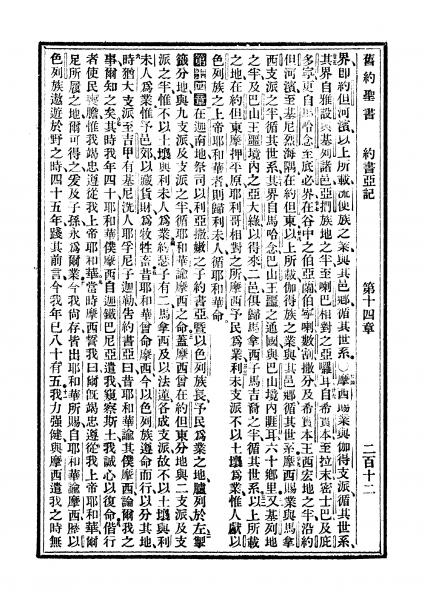 舊約聖書　約書亞記　第十四章　二百十二
界卽約但河濱以上所載流便族之業與其邑鄉循其世系○摩西賜業與伽得支派循其世系
其界自雅設與基列諸邑亞捫族地之半至喇巴相對之亞囉耳自希實本至拉末密士巴及庇
多寧更自馬哈念至底必界在谷中之伯亞蘭伯寧喇數割撒分及希實本王西宏地之半沿約
但河濱至基尼烈海隅在約但東以上所載伽得族之業與其邑鄉循其世系摩西賜業與馬拿
西支派之半循其世系其界自馬哈念巴山王噩之通國與巴山境內睚耳六十鄉里又基列地
之半及巴山王噩境內之亞大綠以得來二邑俱歸馬拿西子馬吉裔之半循其世系以上所載
之地在約但東摩押平原耶利哥相對之所摩西予民爲業利未支派不以土壤爲業惟人獻以
色列族之上帝耶和華者則歸利未人循耶和華命
第十四章在迦南地祭司以利亞撒嫩之子約書亞曁以色列族長予民爲業之地臚列於左掣
籤分地與九支派及支派之半循耶和華諭摩西之命蓋摩西曾在約但東分地與二支派及支
派之半惟不以土壤與利未人爲業約瑟子有二馬拿西及以法蓮各成支派故不以土壤與利
未人爲業惟予邑郊以藏貨財爲牧牲畜昔耶和華曾命摩西今以色列族遵命而行以分其地
時猶大支派至吉甲有基尼洗人耶孚尼子迦勒告約書亞曰昔耶和華諭其僕摩西論爾我之
事爾知之矣其時我年四十耶和華僕摩西自迦鐵巴尼亞遣我窺察斯土我誠心以復命偕行
者使民喪膽惟我竭忠遵從我上帝耶和華當時摩西誓我曰爾旣竭忠遵從我上帝耶和華爾
足所履之地爾可得之爰及子孫永爲爾業今我尙存皆出耶和華所賜自耶和華諭摩西歷以
色列族遨遊於野之時四十五年踐其前言今我年已八十有五我力强健與摩西遣我之時無